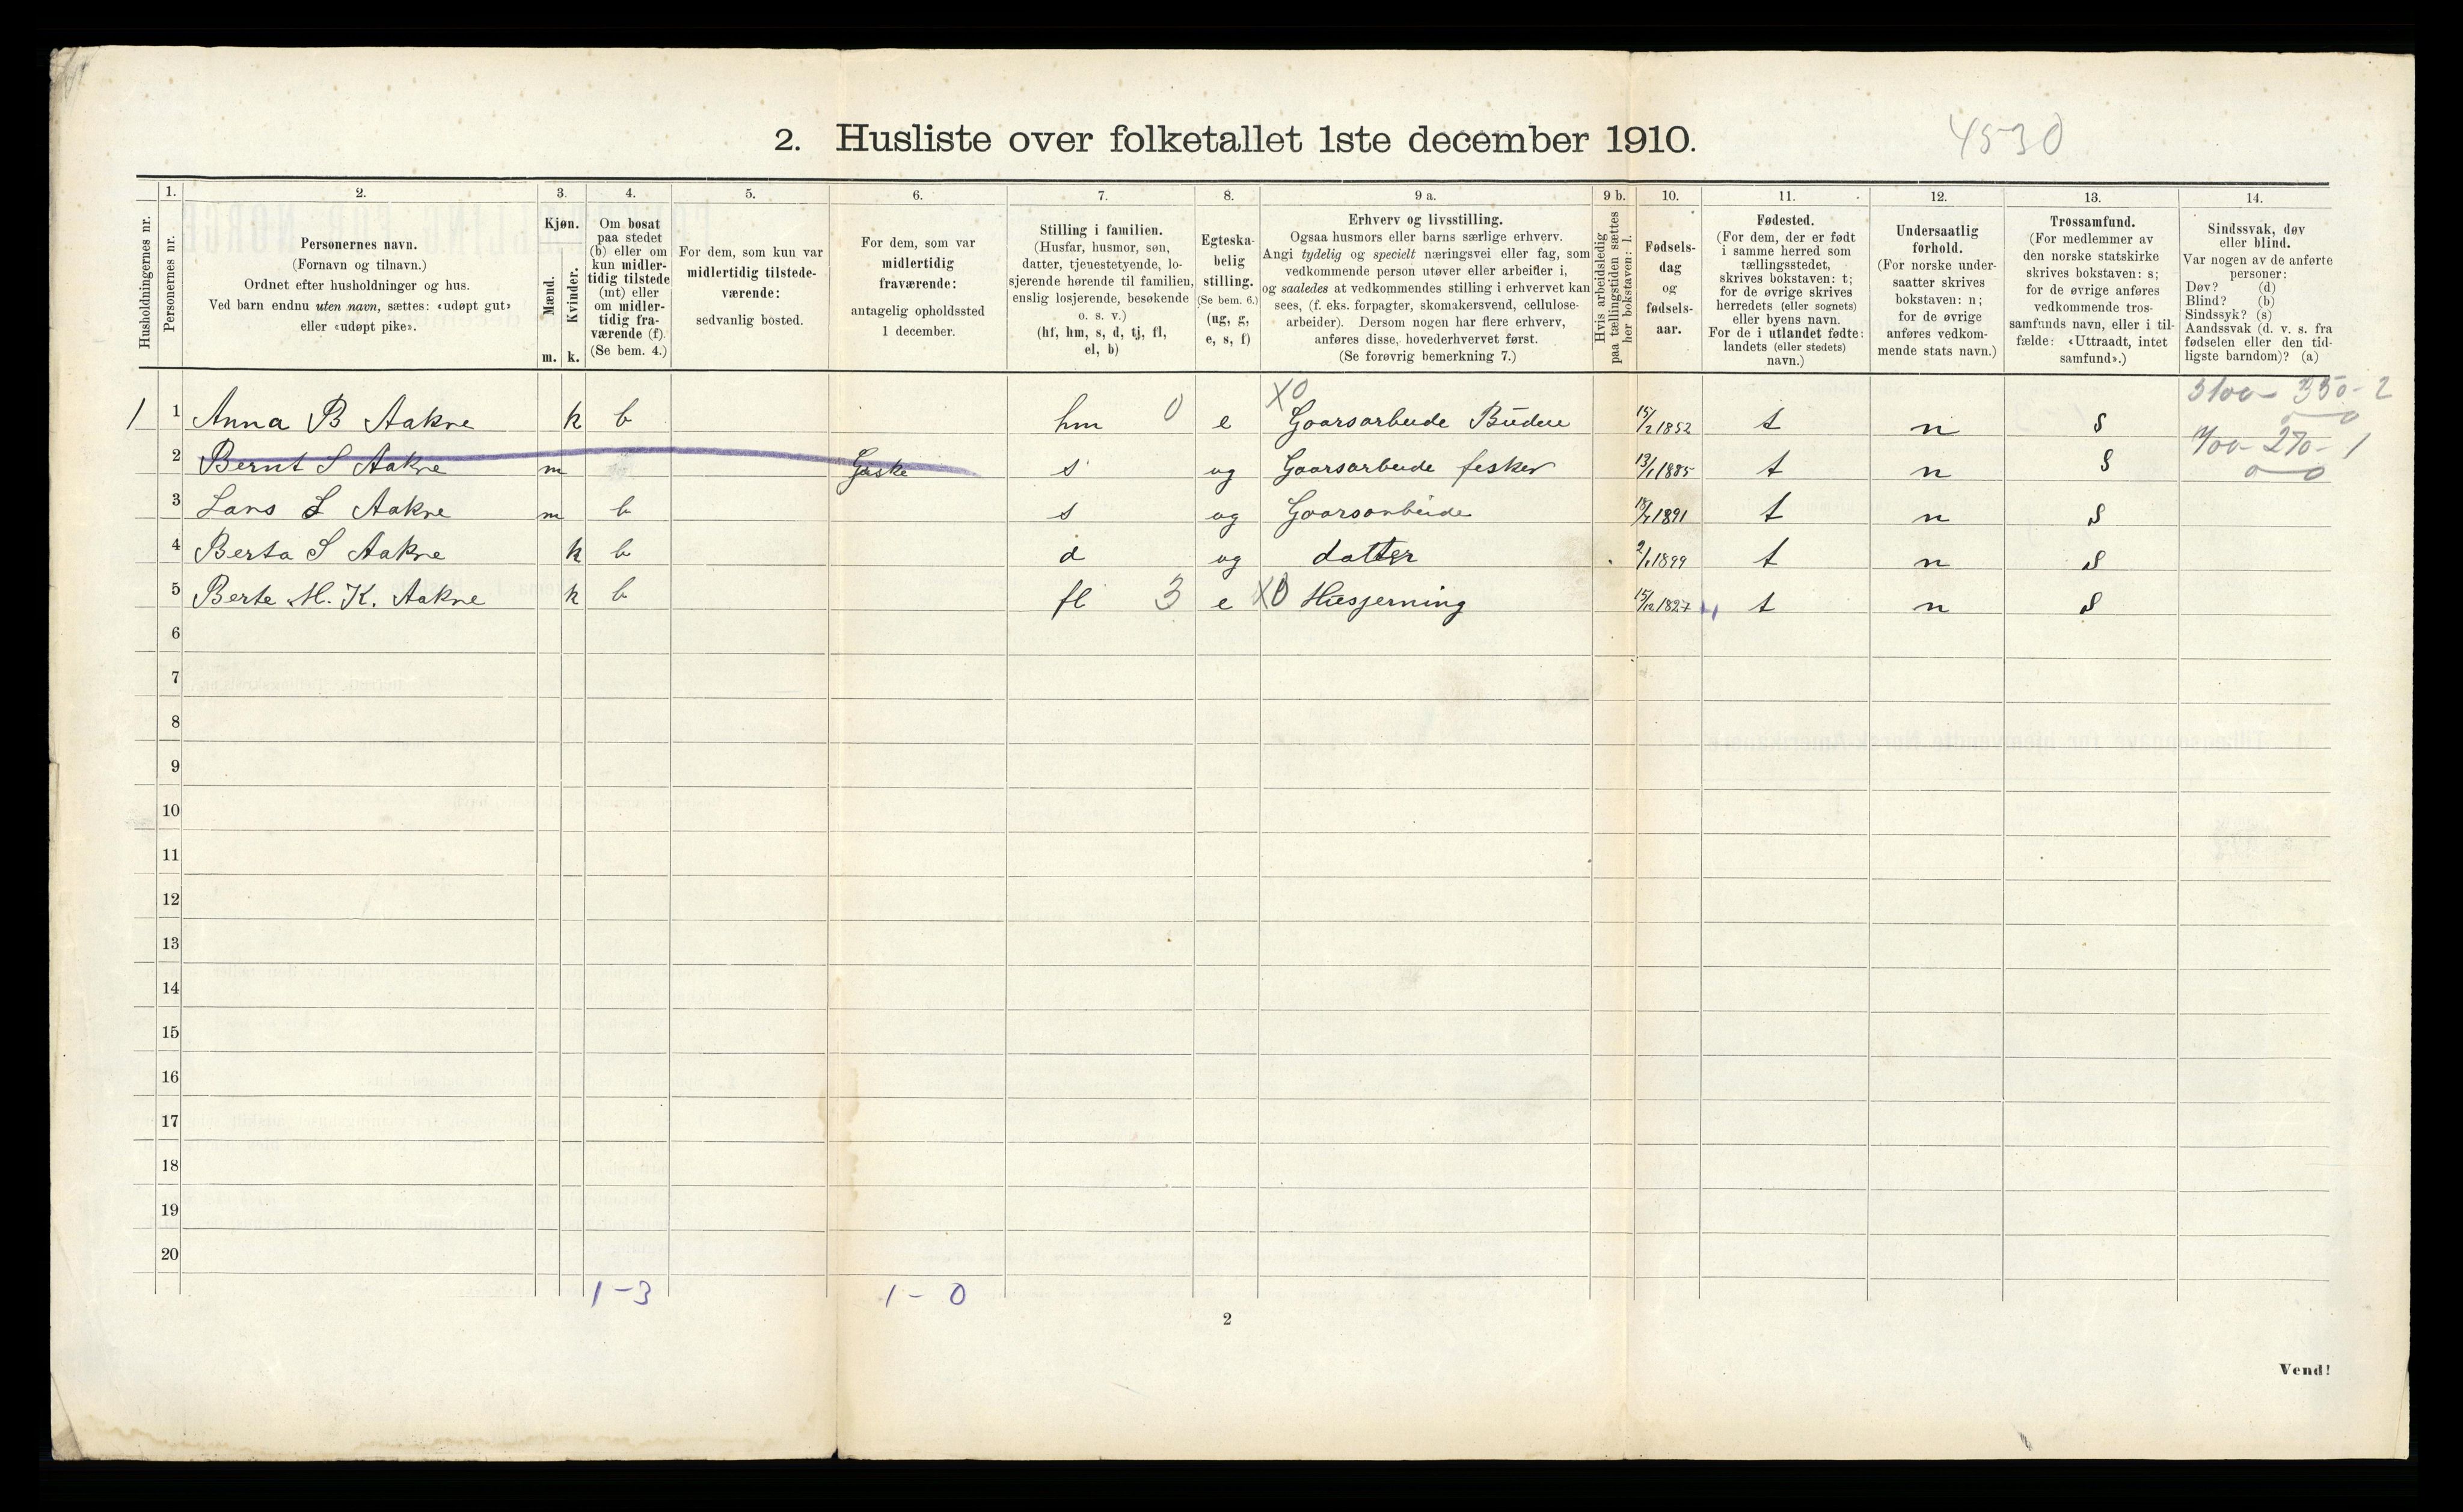 2. Husliste over folketallet 1ste december 1910.
4530
Husholdningernes nr.
1.
Personernes nr.
2.
Personernes navn.
(Fornavn og tilnavn.)
Ordnet efter husholdninger og hus.
Ved barn endnu uten navn, sættes: «udøpt gut»
eller «udøpt pike».
3.
Kjøn.
Mænd.
Kvinder.
m. k.
4.
Om bosat
paa stedet
(b) eller om
kun midler-
tidig tilstede
(mt) eller
om midler-
tidig fra-
værende (f).
(Se bem. 4.)
5.
For dem, som kun var
midlertidig tilstede-
værende:
sedvanlig bosted.
6.
For dem, som var
midlertidig
fraværende:
antagelig opholdssted
1 december.
7.
Stilling i familien.
(Husfar, husmor, søn,
datter, tjenestetyende, lo-
sjerende hørende til familien,
enslig losjerende, besøkende
o. s. v.)
(hf, hm, s, d, tj, fl,
el, b)
8.
Egteska-
belig
stilling.
(Se bem. 6.)
(ug, g,
e, s, f)
9 a.
Erhverv og livsstilling.
Ogsaa husmors eller barns særlige erhverv.
Angi tydelig og specielt næringsvei eller fag, som
vedkommende person utøver eller arbeider i,
og saaledes at vedkommendes stilling i erhvervet kan
sees, (f. eks. forpagter, skomakersvend, cellulose-
arbeider). Dersom nogen har flere erhverv,
anføres disse, hovederhvervet først.
(Se forøvrig bemerkning 7.)
9 b.
Hvis arbeidsledig
paa tællingstiden sættes
her bokstaven: l.
10.
Fødsels-
dag
og
fødsels-
aar.
11.
Fødested.
(For dem, der er født
i samme herred som
tællingsstedet,
skrives bokstaven: t;
for de øvrige skrives
herredets (eller sognets)
eller byens navn.
For de i utlandet fødte:
landets (eller stedets)
navn.)
12.
Undersaatlig
forhold.
(For norske under-
saatter skrives
bokstaven: n;
for de øvrige
anføres vedkom-
mende stats navn.)
13.
Trossamfund.
(For medlemmer av
den norske statskirke
skrives bokstaven: s;
for de øvrige anføres
vedkommende tros-
samfunds navn, eller i til-
fælde: «Uttraadt, intet
samfund».)
14.
Sindssvak, døv
eller blind.
Var nogen av de anførte
personer:
Døv? (d)
Blind? (b)
Sindssyk? (s)
Aandssvak (d. v. s. fra
fødselen eller den tid-
ligste barndom)? (a)
X0 3100- 350- 2
1 1 Anna B Aakre k b hm 0 e Goarsarbeide Büdeie 15/2 1852 t n s
2 Bernt S Aakre m Giske s ug Goarsarbeide fesker 13/1 1885 t n s 270- 1
3 Lars L Aakre m b s ug Goarsarbeide 1891 t n s
4 Berta S Aakre k b d ug datter 2/1 1899 t n s
5 Berte M. K. Aakre k b fl 3 e X0 Husgerning 15/12 1827 t n s
6
7
8
9
10
11
12
13
14
15
16
17
18
19
20
1-3 1-0
2
Vend!